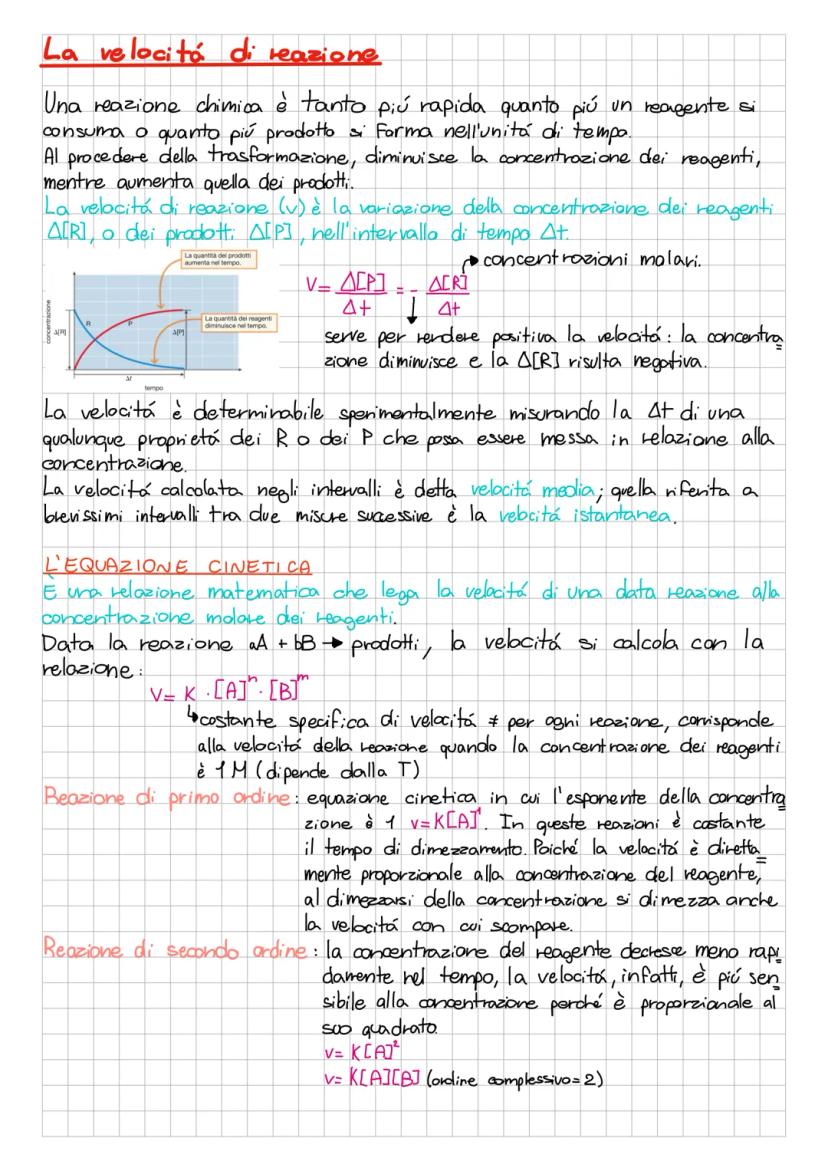 La velocitá di reazione
Una reazione chimica è tanto piú rapida quanto piú un reagente si
consuma o quanto piú prodotto si forma nell'unitá di tempo.
Al procedere della trasformazione, diminuisce la concentrazione dei reagenti,
mentre aumenta quella dei prodotti.
La velocitá di reazione (v) è la variazione della concentrazione dei reagenti
Δ[R], o dei prodotti Δ[P], nell'intervallo di tempo Δt.
La quantità dei prodotti
aumenta nel tempo.
La quantità dei reagenti
diminuisce nel tempo.
concentrazione
Δ[R]
R
P
Δ[P]
Δt
tempo
concentrazioni molari.
V= Δ[P]/Δt = - Δ[R]/Δt
serve per rendere positiva la velocitá: la concentra
zione diminuisce e la Δ[R] risulta negativa.
La velocitá è determinabile sperimentalmente misurando la Δt di una
qualunque proprietá dei R o dei P che possa essere messa in relazione alla
concentrazione.
La velocitá calcolata negli intervalli è detta velocitá media; quella riferita a
brevissimi intervalli tra due misure successive è la velocitá istantanea.
L'EQUAZIONE CINETICA
È una relazione matematica che lega la velocitá di una data reazione alla
concentrazione molare dei reagenti.
Data la reazione aA + bB → prodotti, la velocitá si calcola con la
relazione:
V= K · [A]ⁿ · [B]ᵐ
costante specifica di velocitá ≠ per ogni reazione, corrisponde
alla velocitá della reazione quando la concentrazione dei reagenti
è 1 M (dipende dalla T)
Reazione di primo ordine: equazione cinetica in cui l'esponente della concentra
zione è 1 v=K[A]¹. In queste reazioni è costante
il tempo di dimezzamento. Poiché la velocitá è diretta
mente proporzionale alla concentrazione del reagente,
al dimezzarsi della concentrazione si dimezza anche
la velocitá con cui scompare.
Reazione di secondo ordine: la concentrazione del reagente decresce meno rapi
damente nel tempo, la velocitá, infatti, è piú sen
sibile alla concentrazione perché è proporzionale al
suo quadrato.
v= K[A]²
v= K[A][B] (ordine complessivo=2)